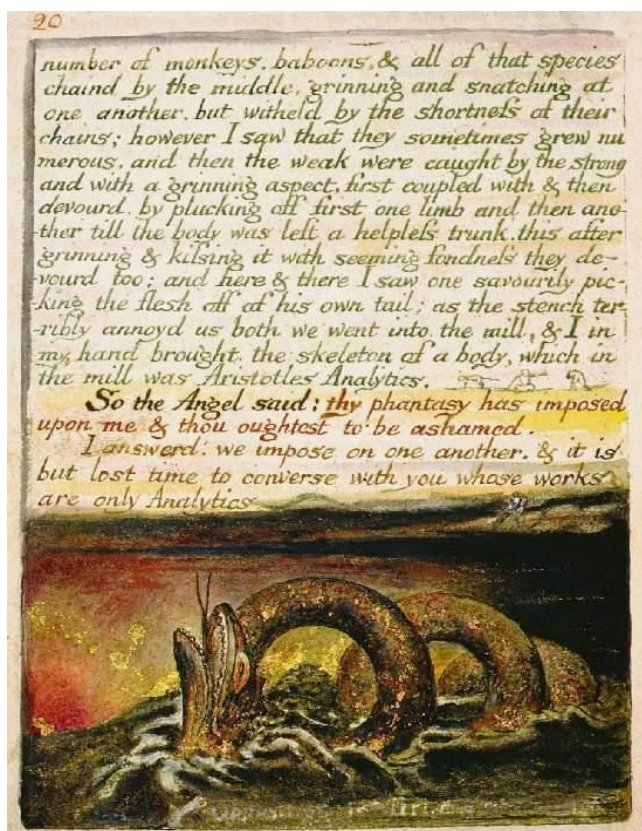 20
number of monkeys, baboons, & all of that species
chaind by the middle, grinning and snatching at
one another, but witheld by the shortneſs of their
chains; however I saw that they sometimes grew nu
merous, and then the weak were caught by the strong
and with a grinning aspect, first coupled with & then
devourd, by plucking off first one limb and then ano-
ther till the body was left a helpleſs trunk. this after
grinning & kiſsing it with seeming fondneſs they de-
-vourd too; and here & there I saw one savourily pic-
-king the flesh off of his own tail; as the stench ter-
-ribly annoyd us both we went into the mill, & I in
my hand brought the skeleton of a body, which in
the mill was Aristotles Analytics.
So the Angel said: thy phantasy has imposed
upon me & thou oughtest to be ashamed.
I answerd: we impose on one another, & it is
but lost time to converse with you whose works
are only Analytics